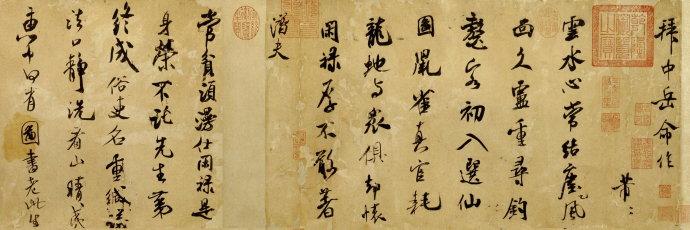 拜中岳命作
芾
雲水心常結塵風
面久盧重尋釣
鼇客初入選仙
圖鼠雀真官耗
龍蛇与衆俱却懷
閑祿厚不敢著
潛夫
常貧須漫仕閑祿是
身榮不託先生第
終成俗吏名重緘議
法口靜洗看山晴夷
惠中何有圖書老此生